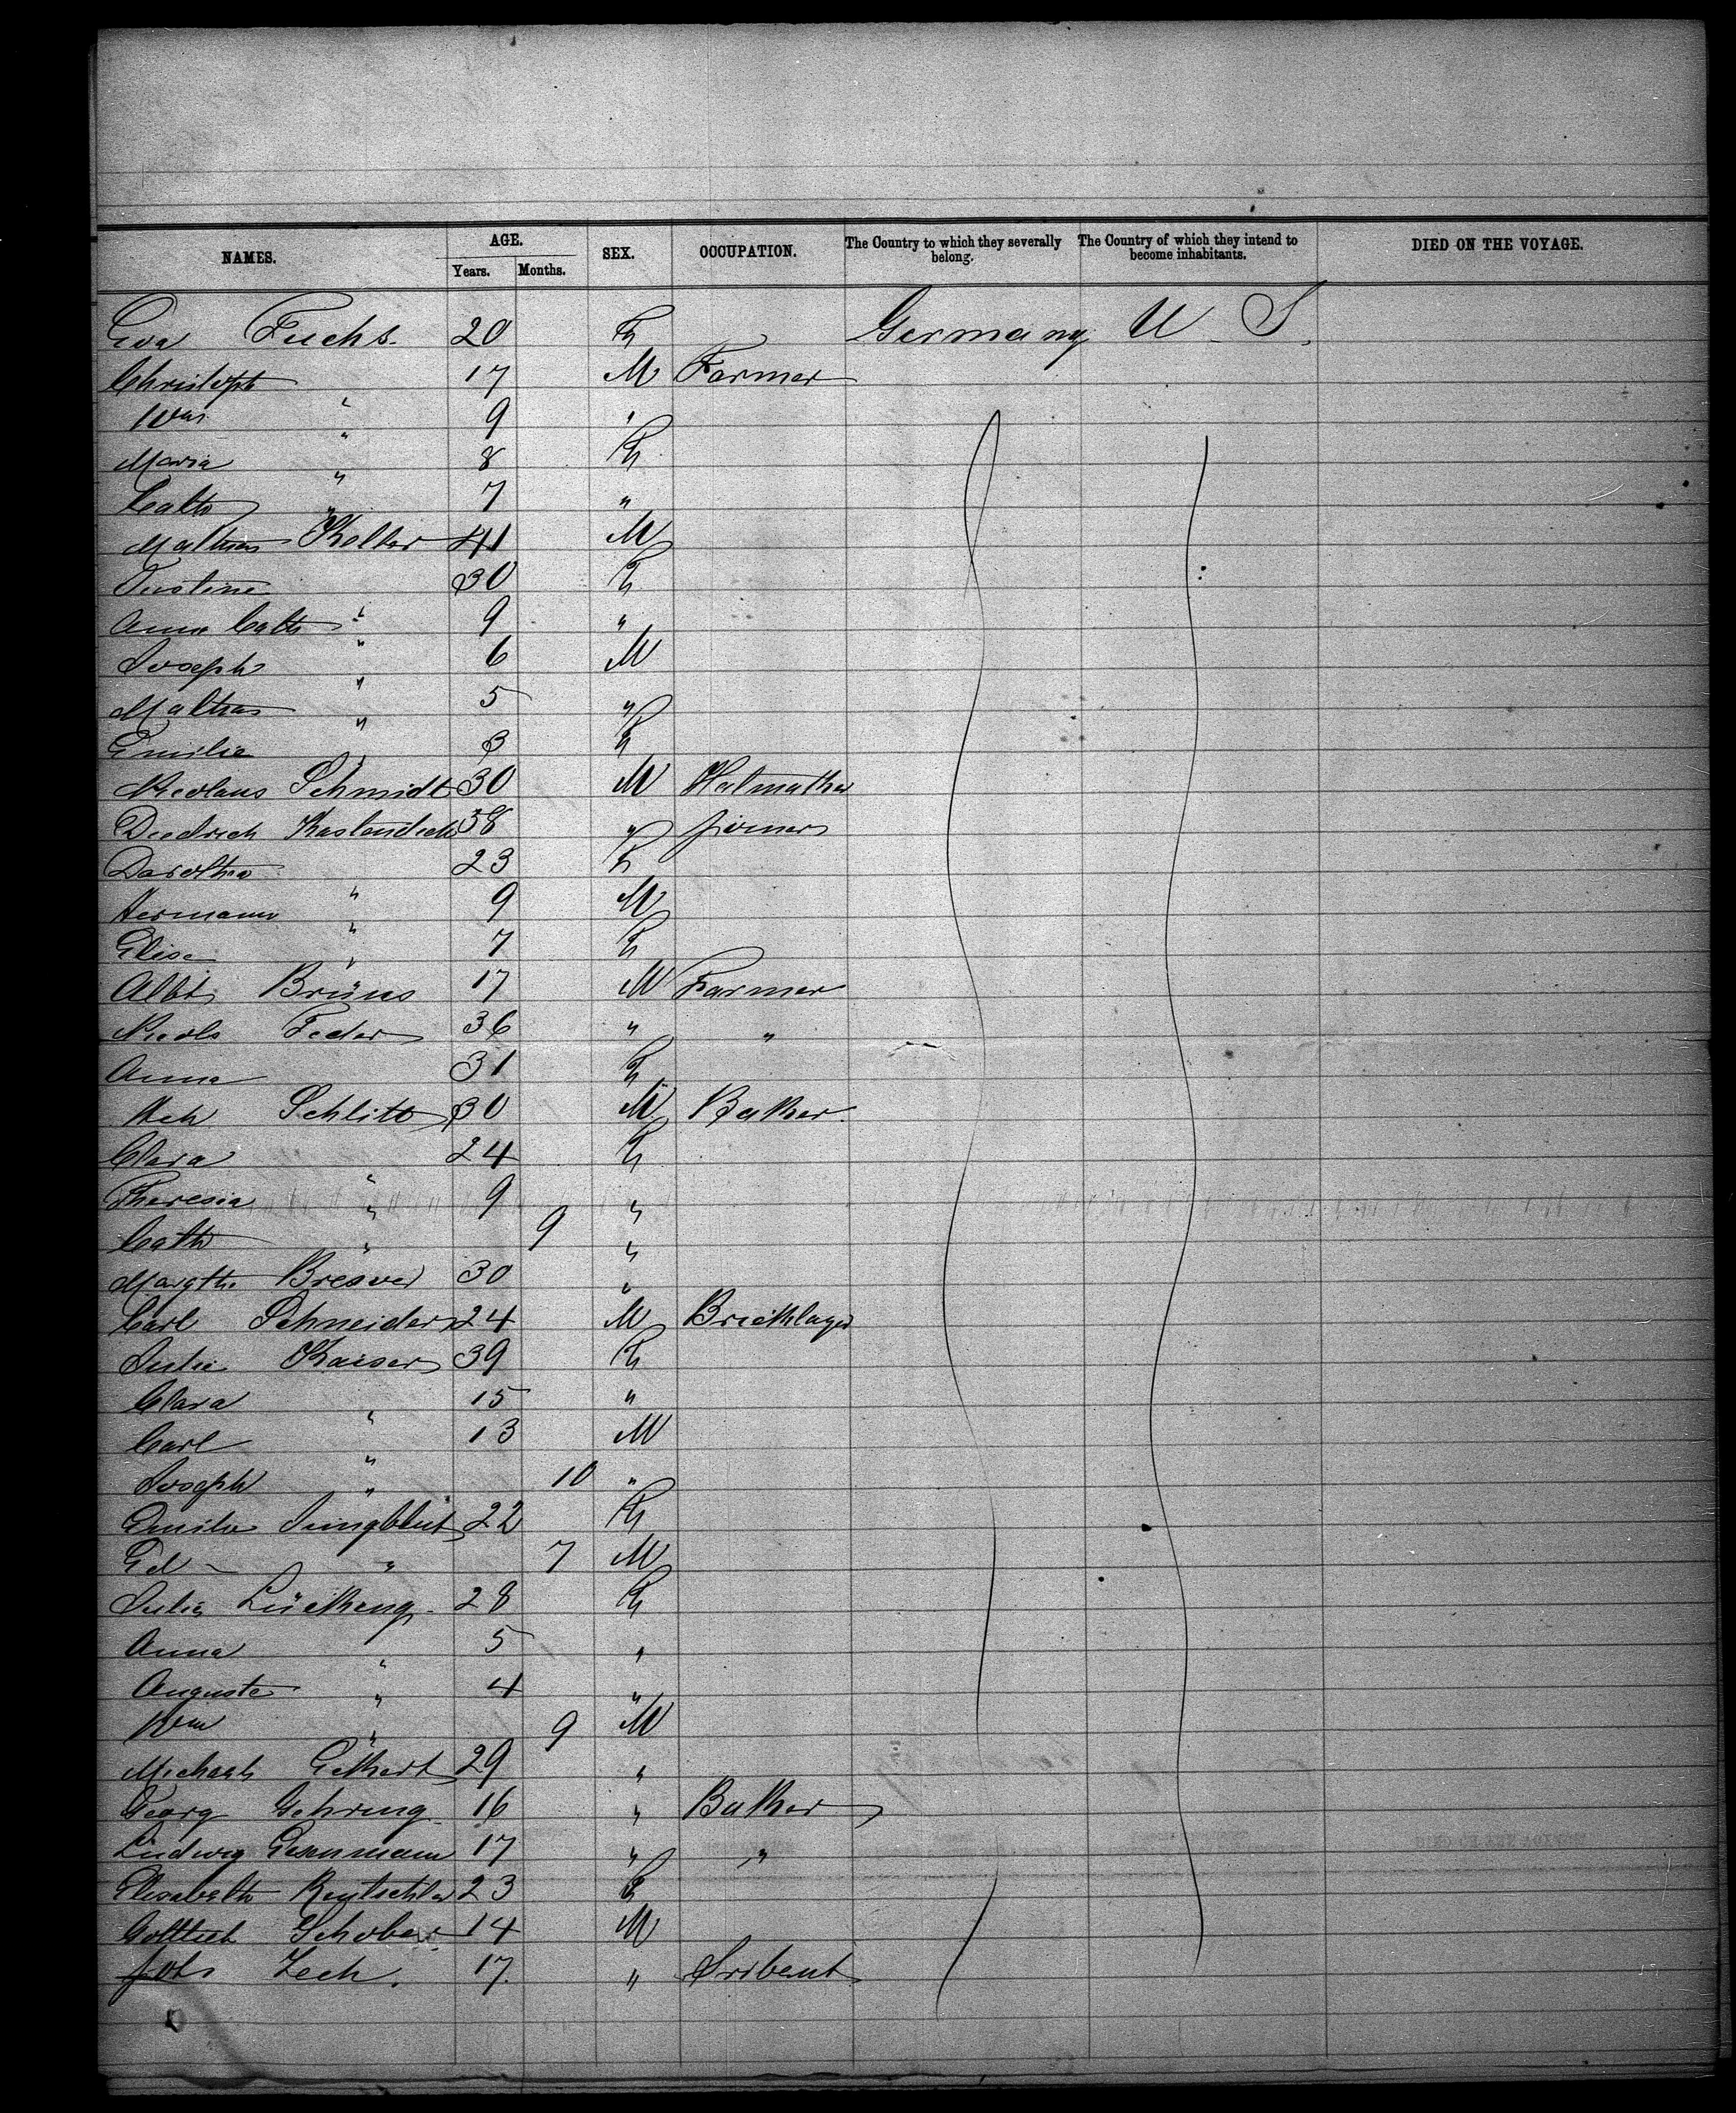 NAMES. AGE. SEX. OCCUPATION. The Country to which they severally belong. The Country of which they intend to become inhabitants. DIED ON THE VOYAGE.
Years. Months.
Eva Fuchs 20 F Germany U S.
Christoph 17 M Farmer
Wm " 9 "
Maria " 8 F
Cath " 7 "
Mathias Kolter 41 M
Justine 30 F
Anna Cath " 9 "
Joseph " 6 M
Mathias " 5 "
Emilie " 3 F
Nicolaus Schmidt 30 M Hatmaker
Diedrich 38 " Joiner
Dorothea 23 F
Hermann " 9 M
Elise " 7 F
Albt Brüns 17 M Farmer
Nicols Feder 36 " "
Anna 31 F
Hch Schlitt 30 M Baker
Clara 24 F
Theresia " 9 "
Cath " 9 "
Margth. 30 "
Carl Schneider 24 M Bricklayer
Julie Kaiser 39 F
Clara " 15 "
Carl " 13 M
Joseph " 10 "
Emilie Jungblut 22 F
Ed " 7 M
Julie 28 F
Anna " 5 "
Auguste " 4 "
Wm " 9 M
Michael Gekhert 29 "
Georg Gehring 16 " Baker
Ludwig Gesenmann 17 " "
Elisabeth Rentschler 23 F
Gottlieb Schober 14 M
Joh Zech. 17. " Sribent